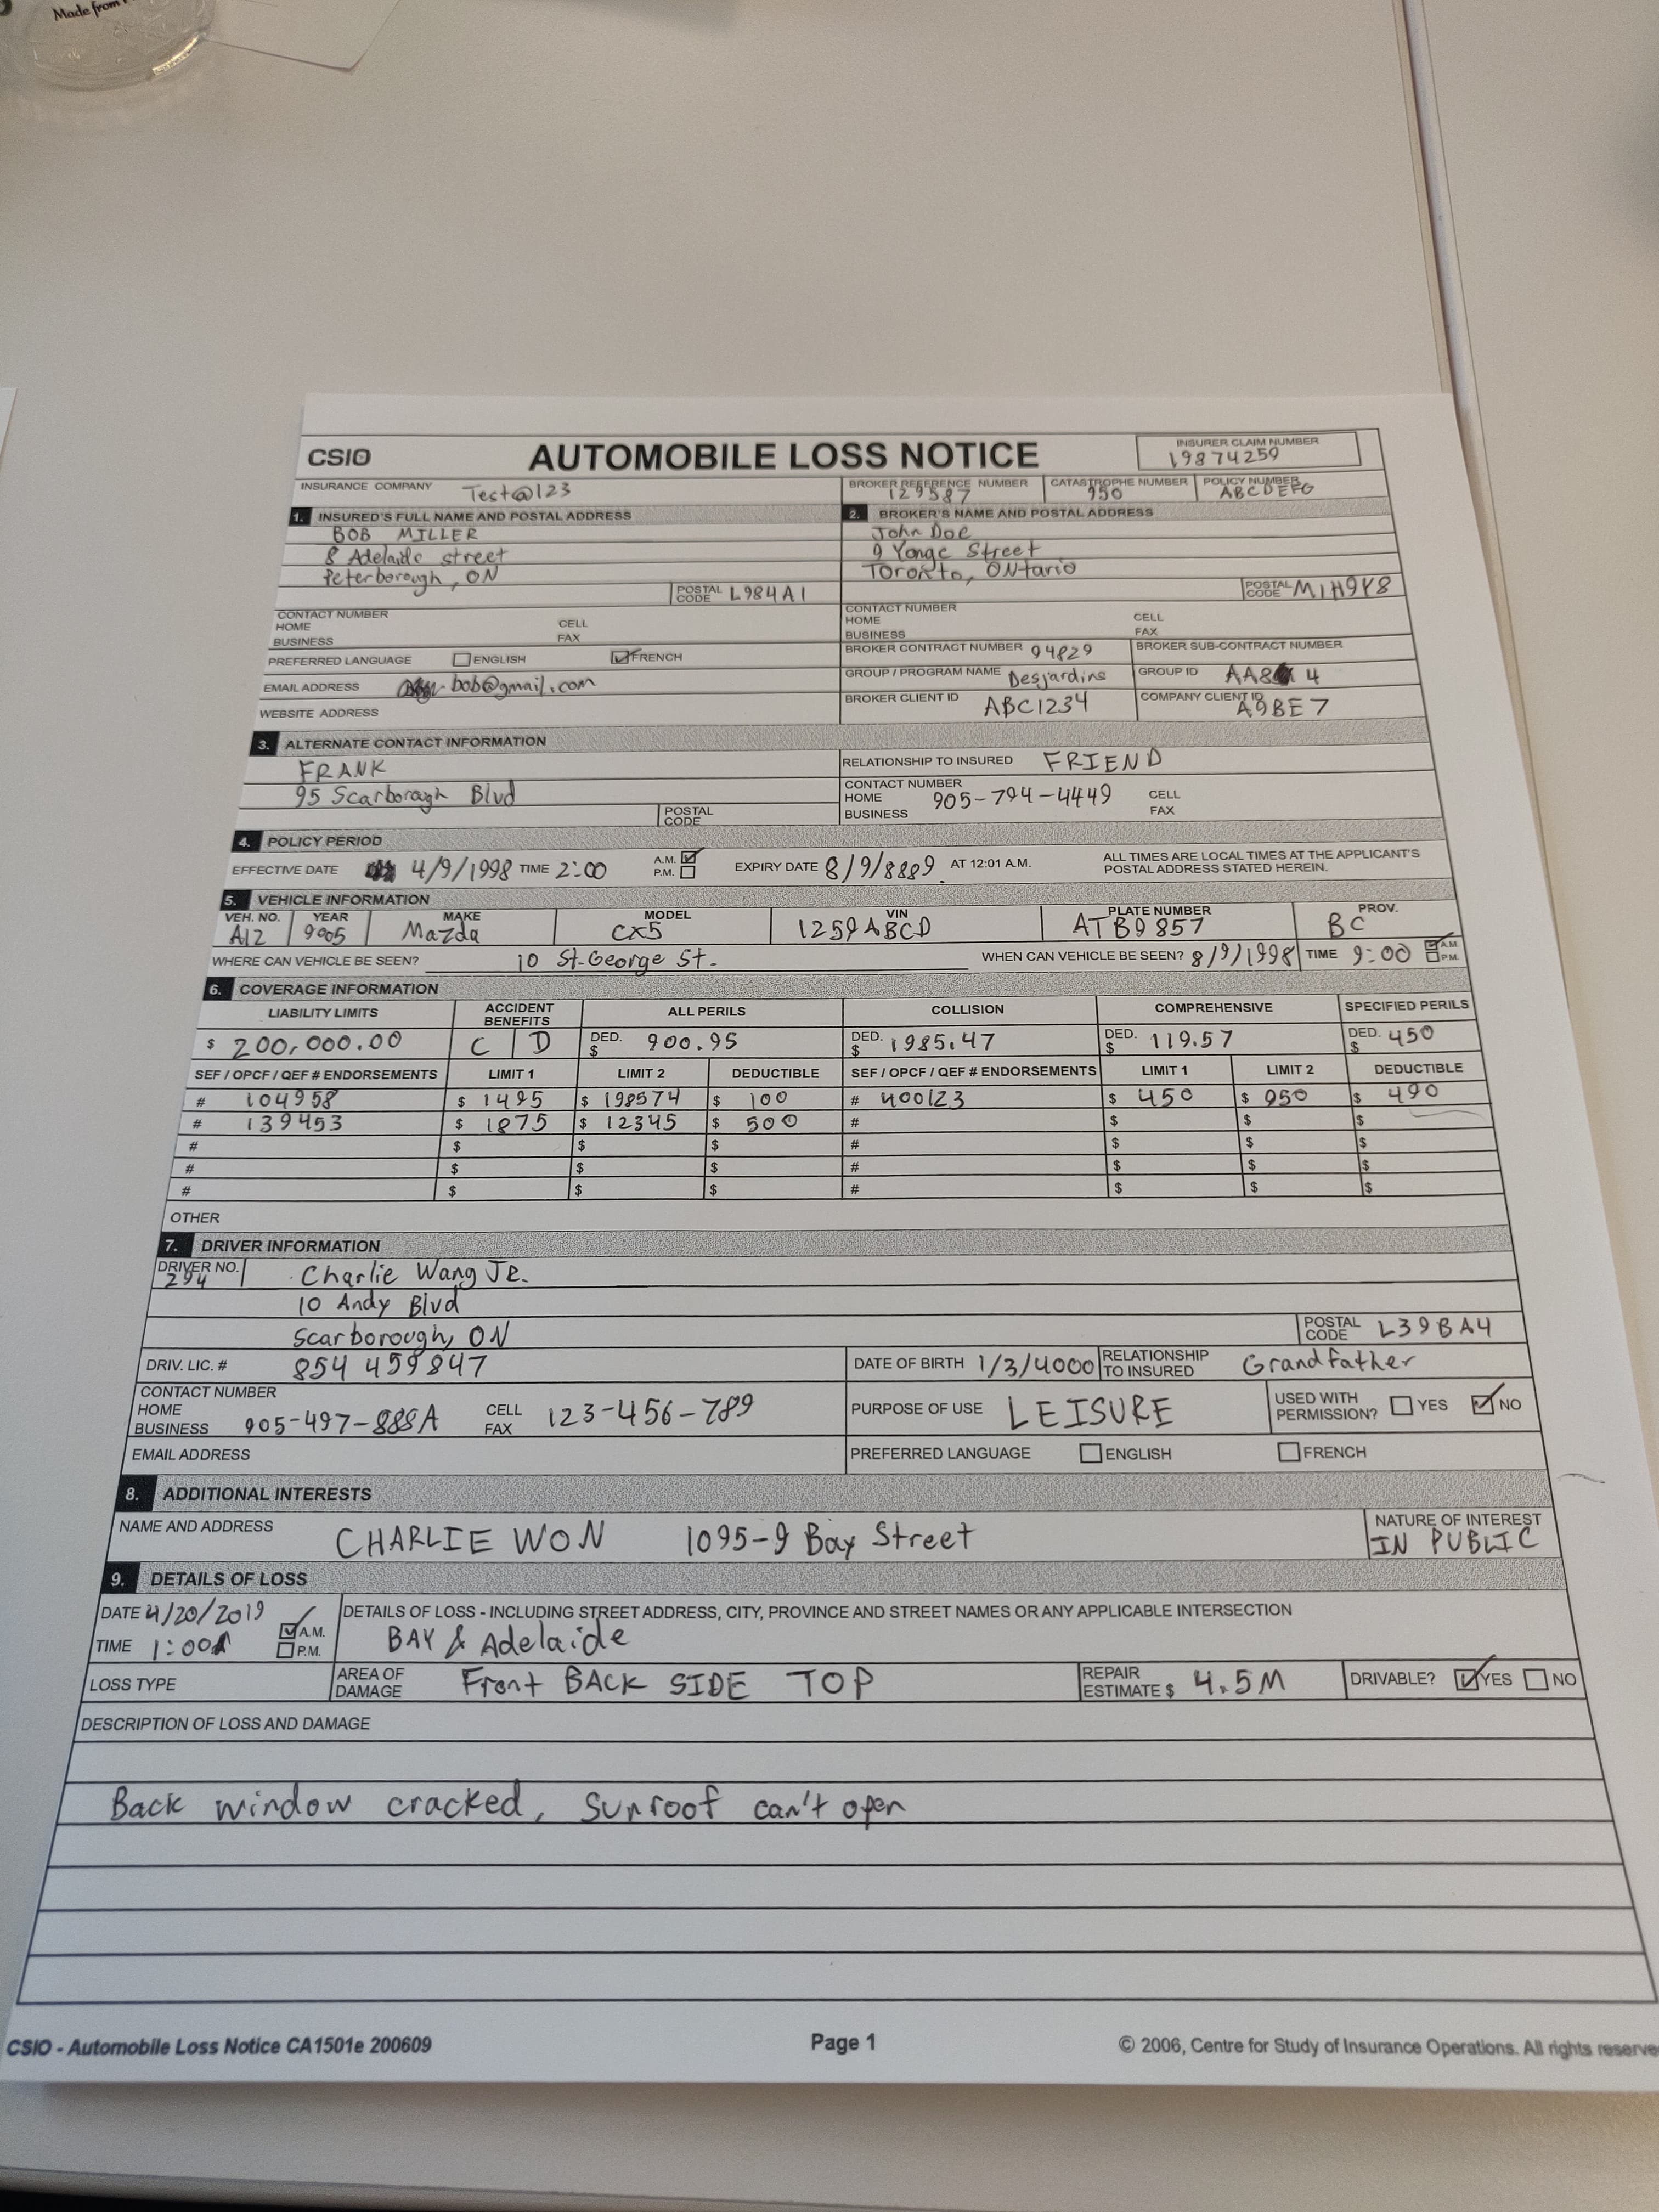 Made from
CSIO AUTOMOBILE LOSS NOTICE
INSURER CLAIM NUMBER
19874259
INSURANCE COMPANY Test@123
BROKER REFERENCE NUMBER 129587
CATASTROPHE NUMBER 950
POLICY NUMBER ABCDEFG
1. INSURED'S FULL NAME AND POSTAL ADDRESS
BOB MILLER
8 Adelaide street
Peterborough, ON
POSTAL CODE L984A1
CONTACT NUMBER
HOME CELL
BUSINESS FAX
PREFERRED LANGUAGE ENGLISH FRENCH
EMAIL ADDRESS bob@gmail.com
WEBSITE ADDRESS
2. BROKER'S NAME AND POSTAL ADDRESS
John Doe
9 Yonge Street
Toronto, Ontario
POSTAL CODE M1H9K8
CONTACT NUMBER
HOME CELL
BUSINESS FAX
BROKER CONTRACT NUMBER 94829 BROKER SUB-CONTRACT NUMBER
GROUP / PROGRAM NAME Desjardins GROUP ID AA8 4
BROKER CLIENT ID ABC1234 COMPANY CLIENT ID A9BE7
3. ALTERNATE CONTACT INFORMATION
FRANK
95 Scarborough Blvd
POSTAL CODE
RELATIONSHIP TO INSURED FRIEND
CONTACT NUMBER
HOME 905-794-4449 CELL
BUSINESS FAX
4. POLICY PERIOD
EFFECTIVE DATE 4/9/1998 TIME 2:00 A.M. P.M. EXPIRY DATE 8/9/8889 AT 12:01 A.M. ALL TIMES ARE LOCAL TIMES AT THE APPLICANT'S POSTAL ADDRESS STATED HEREIN.
5. VEHICLE INFORMATION
VEH. NO. YEAR MAKE MODEL VIN PLATE NUMBER PROV.
A12 9005 Mazda CX5 1259ABCD ATB9857 BC
WHERE CAN VEHICLE BE SEEN? 10 St-George St. WHEN CAN VEHICLE BE SEEN? 8/9/1998 TIME 9:00 A.M. P.M.
6. COVERAGE INFORMATION
LIABILITY LIMITS ACCIDENT BENEFITS ALL PERILS COLLISION COMPREHENSIVE SPECIFIED PERILS
$ 200,000.00 C D DED. $ 900.95 DED. $ 1985.47 DED. $ 119.57 DED. $ 450
SEF / OPCF / QEF # ENDORSEMENTS LIMIT 1 LIMIT 2 DEDUCTIBLE SEF / OPCF / QEF # ENDORSEMENTS LIMIT 1 LIMIT 2 DEDUCTIBLE
# 104958 $ 1495 $ 198574 $ 100 # 400123 $ 450 $ 950 $ 490
# 139453 $ 1875 $ 12345 $ 500 # $ $ $
# $ $ $ # $ $ $
# $ $ $ # $ $ $
# $ $ $ # $ $ $
OTHER
7. DRIVER INFORMATION
DRIVER NO. 294 Charlie Wang JR.
10 Andy Blvd
Scarborough, ON
POSTAL CODE L39BA4
DRIV. LIC. # 854 459847 DATE OF BIRTH 1/3/4000 RELATIONSHIP TO INSURED Grandfather
CONTACT NUMBER
HOME CELL
BUSINESS 905-497-888A FAX 123-456-789
PURPOSE OF USE LEISURE USED WITH PERMISSION? YES NO
EMAIL ADDRESS PREFERRED LANGUAGE ENGLISH FRENCH
8. ADDITIONAL INTERESTS
NAME AND ADDRESS CHARLIE WON 1095-9 Bay Street
NATURE OF INTEREST
IN PUBLIC
9. DETAILS OF LOSS
DATE 4/20/2019
TIME 1:00 A.M. P.M.
DETAILS OF LOSS - INCLUDING STREET ADDRESS, CITY, PROVINCE AND STREET NAMES OR ANY APPLICABLE INTERSECTION
BAY & Adelaide
LOSS TYPE AREA OF DAMAGE Front BACK SIDE TOP REPAIR ESTIMATE $ 4.5M DRIVABLE? YES NO
DESCRIPTION OF LOSS AND DAMAGE
Back window cracked, Sunroof can't open
CSIO - Automobile Loss Notice CA1501e 200609 Page 1 © 2006, Centre for Study of Insurance Operations. All rights reserve